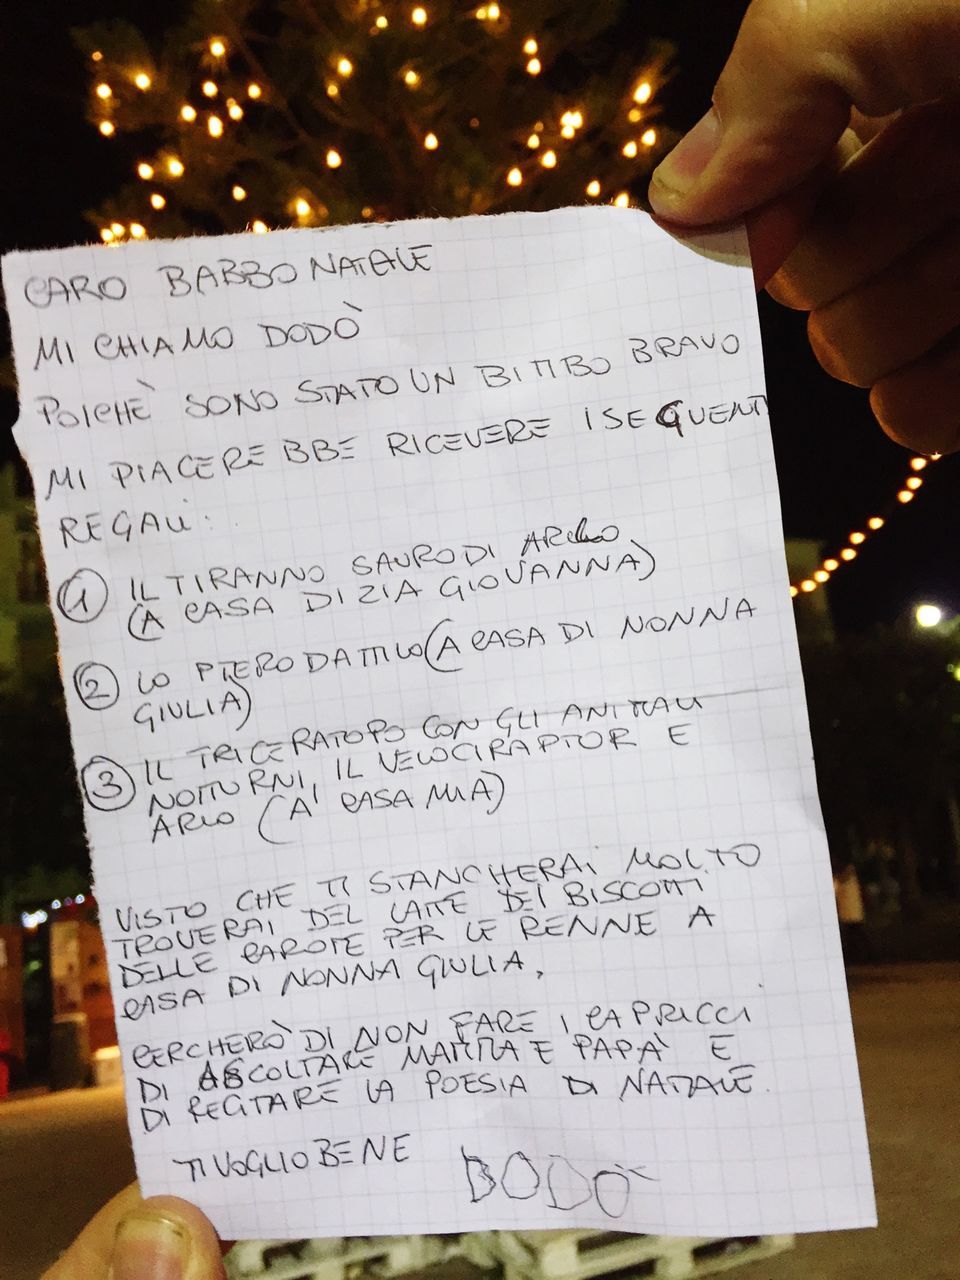 CARO BABBO NATALE
MI CHIAMO DODÒ
POICHÈ SONO STATO UN BIMBO BRAVO
MI PIACEREBBE RICEVERE I SEGUENTI
REGALI:
① IL TIRANNOSAURO DI ARLO
(A CASA DI ZIA GIOVANNA)
② LO PTERODATTILO (A CASA DI NONNA
GIULIA)
③ IL TRICERATOPO CON GLI ANIMALI
NOTTURNI, IL VELOCIRAPTOR E
ARLO (A CASA MIA)
VISTO CHE TI STANCHERAI MOLTO
TROVERAI DEL LATTE DEI BISCOTTI
DELLE CAROTE PER LE RENNE A
CASA DI NONNA GIULIA.
CERCHERÒ DI NON FARE I CAPRICCI
DI ASCOLTARE MAMMA E PAPÀ E
DI RECITARE LA POESIA DI NATALE.
TI VOGLIO BENE DODÒ